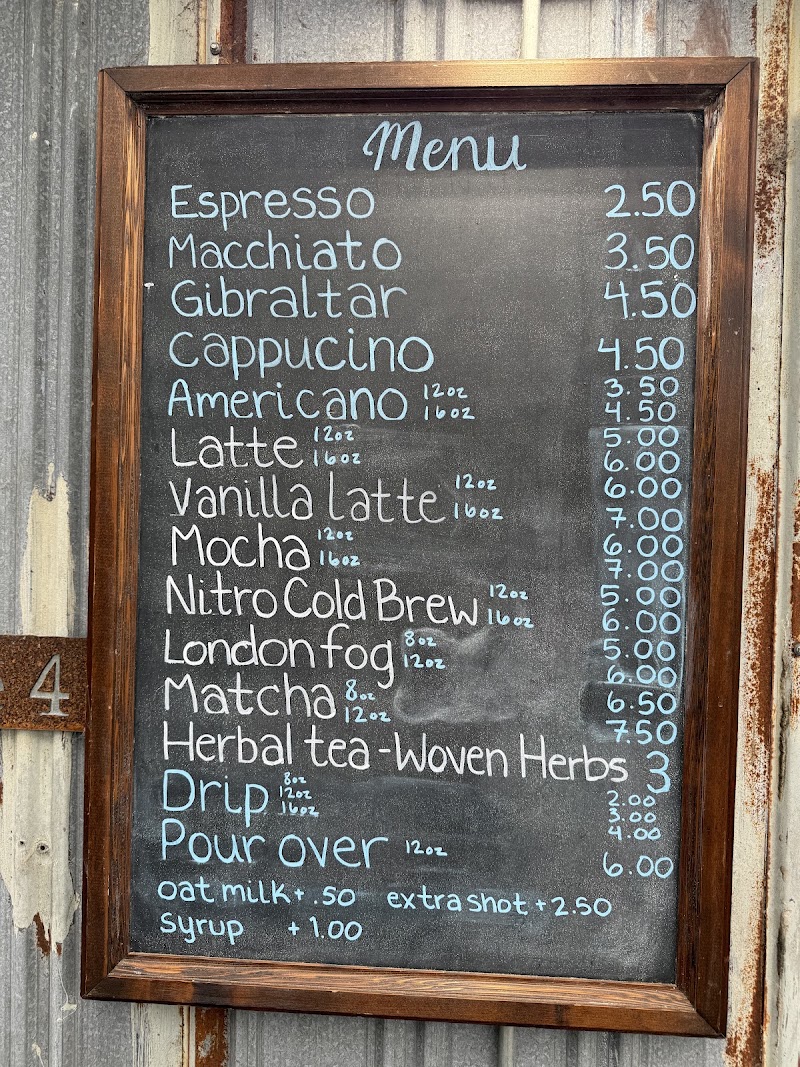 Menu
Espresso 2.50
Macchiato 3.50
Gibraltar 4.50
Cappucino 4.50
Americano 12oz 3.50
16oz 4.50
Latte 12oz 5.00
16oz 6.00
Vanilla Latte 12oz 6.00
16oz 7.00
Mocha 12oz 6.00
16oz 7.00
Nitro Cold Brew 12oz 5.00
16oz 6.00
London fog 8oz 5.00
12oz 6.00
Matcha 8oz 6.50
12oz 7.50
Herbal tea - Woven Herbs 3
Drip 8oz 2.00
12oz 3.00
16oz 4.00
Pour over 12oz 6.00
oat milk + .50 extra shot + 2.50
syrup + 1.00
4